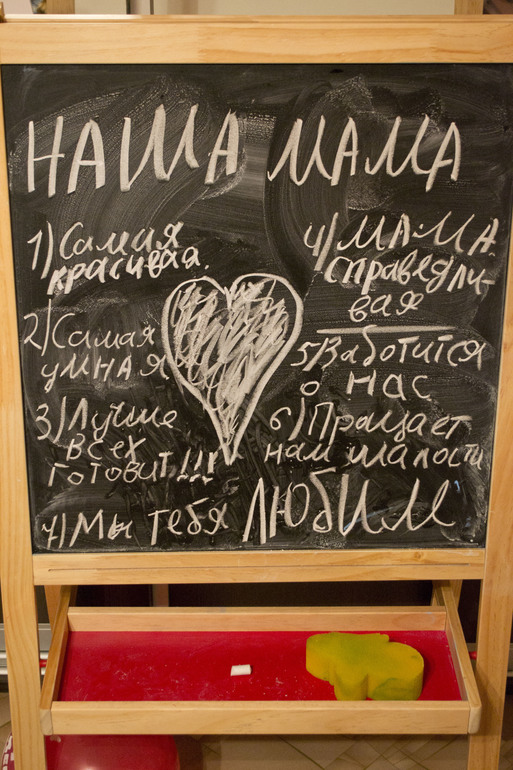 НАША МАМА
1) Самая
красивая.
2) Самая
умная
3) Лучше
всех
готовит!!!
4) МАМА
справедли-
вая
5) Заботится
о нас
6) Прощает
нам шалости
7) Мы тебя ЛЮБИМ